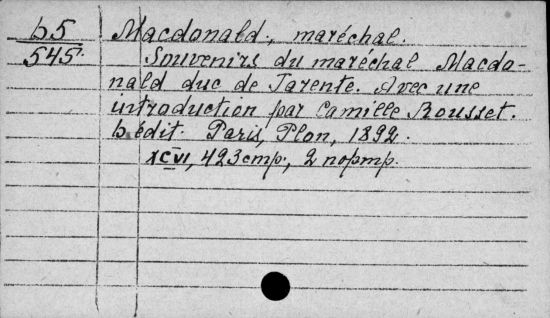 b5
545.
Macdonald, maréchal.
Souvenirs du maréchal Macdo-
nald duc de Tarente. Avec une
introduction par Camille Rousset.
6 édit. Paris, Plon, 1892.
XCVI, 423 стр., 2 портр.